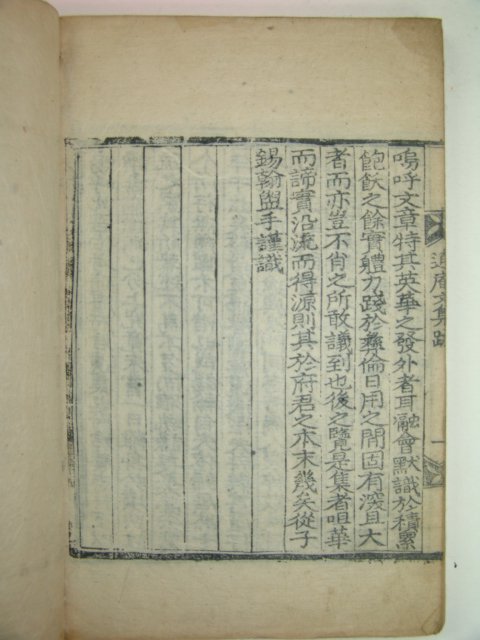 嗚呼文章特其英華之發外者耳瀜會默識於積累
飽飫之餘實軆力踐於彛倫日用之間固有深且大
者而亦豈不肖之所敢議到也後之覽是集者咀華
而諦實沿流而得源則其於府君之本末幾矣從子
錫翰盥手謹識
庵文集跋
一